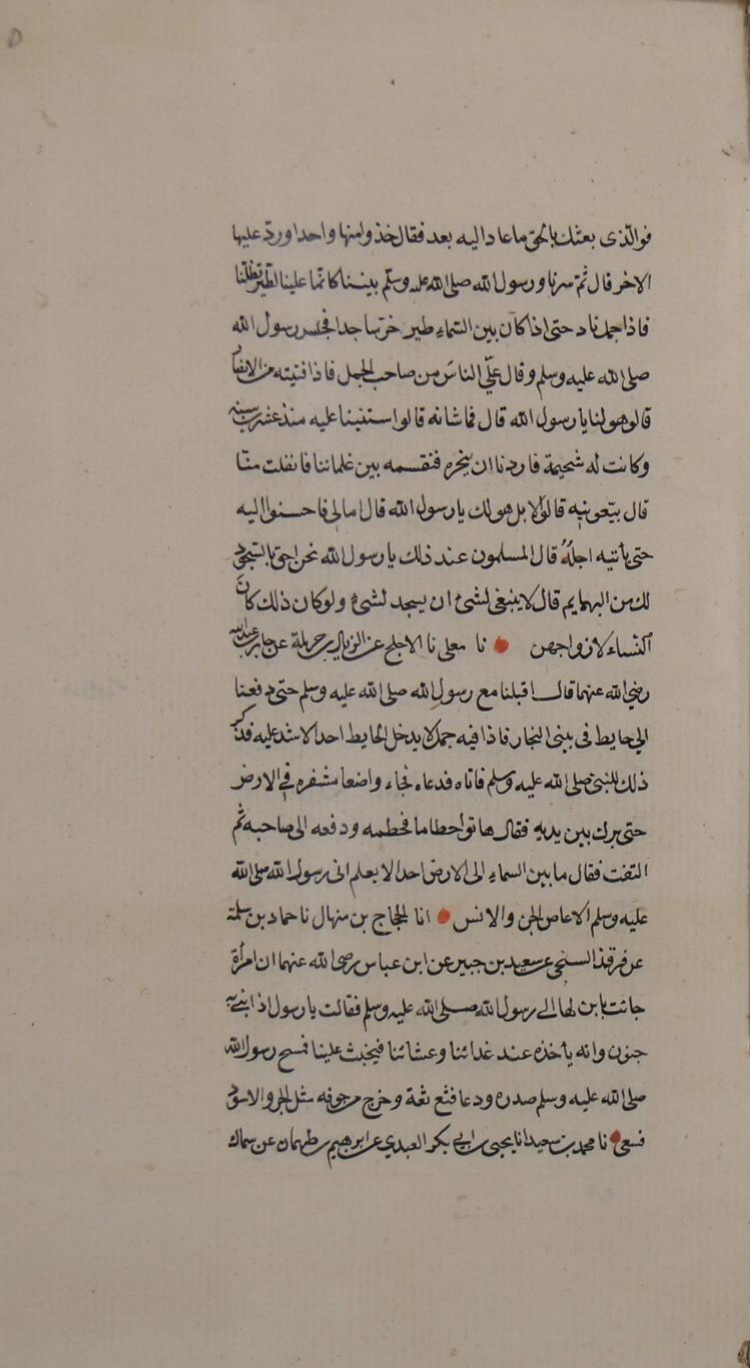 فوالذى بعثك بالحق ماعاد اليه بعد فقال خذوا منها واحدا وردّ عليها
الاخر قال ثم سرنا ورسول الله صلى الله عليه وسلم بيننا كانما علينا الطير تظلنا
فاذا جمل نادّ حتى اذا كان بين السماء طير خرّ ساجدا فجلس رسول الله
صلى الله عليه وسلم وقال علىّ الناس من صاحب الجمل فاذا فتيته من الانصار
قالو هو لنا يا رسول الله قال فما شانه قالوا استنينا عليه منذ عشرين سنه
وكانت له شحيمة فاردنا ان ينحره فنقسمه بين غلماننا فانفلت منّا
قال بيّعونيه قالوا لا بل هو لك يا رسول الله قال اما لى فاحسنوا اليه
حتى يأتيه اجلهُ قال المسلمون عند ذلك يا رسول الله نحن احق بالسجود
لك من البهايم قال لا ينبغى لشئ ان يسجد لشئ ولو كان ذلك كانَ
النّساء لازواجهن نا معلى نا الاجلح عن الزيال بن حرملة عن جابر بن عبد الله
رضي الله عنهما قال اقبلنا مع رسول الله صلى الله عليه وسلم حتى دفعنا
الى حايط فى بنى النجار فاذا فيه جمل لا يدخل الحايط احد الا شد عليه فذكر
ذلك للنبى صلى الله عليه وسلم فاتاه فدعاه فجاء واضعا مشفره في الارض
حتى برك بين يديه فقال هاتوا خطاما فخطمه ودفعه الى صاحبه ثم
التفت فقال ما بين السماء الى الارض احد الا يعلم انى رسول الله صلى الله
عليه وسلم الا عاص الجن والانس انا الحجاج بن منهال نا حماد بن سلمة
عن فرقد السنجى عن سعيد بن جبير عن ابن عباس رضى الله عنهما ان امرأة
جائت بابن لها الى رسول الله صلى الله عليه وسلم فقالت يا رسول اذ ابنى به
جنون وانه يأخذه عند غدائنا وعشائنا فيخبث علينا فمسح رسول الله
صلى الله عليه وسلم صدره ودعا فثع ثعة وخرج من جوفه مثل الجرو الاسود
فسعى نا محمد بن سعيد انا يحيى بن ابى بكر العبدي عن ابرهيم بن طهمان عن سماك